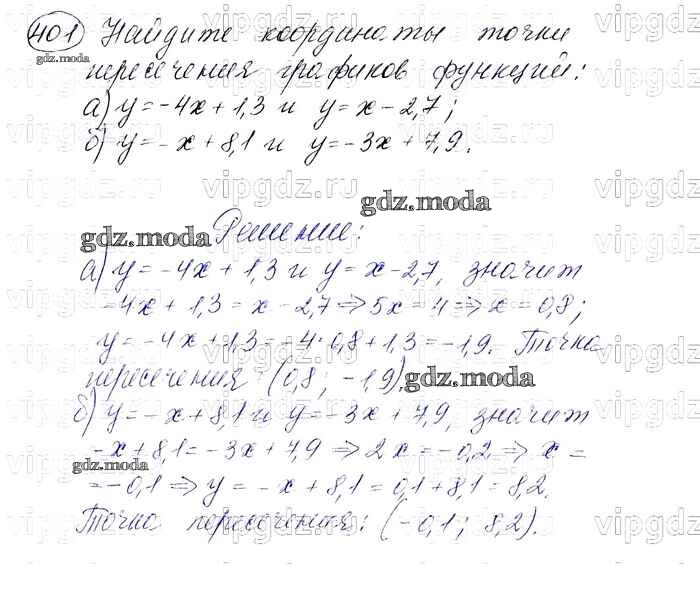 401 Найдите координаты точки
пересечения графиков функций:
а) y=-4x+1,3 и y=x-2,7;
б) y=-x+8,1 и y=-3x+7,9.
Решение:
а) y=-4x+1,3 и y=x-2,7, значит
-4x+1,3=x-2,7⇒5x=4⇒x=0,8;
y=-4x+1,3=-4·0,8+1,3=-1,9. Точка
пересечения (0,8; -1,9).
б) y=-x+8,1 и y=-3x+7,9, значит
-x+8,1=-3x+7,9⇒2x=-0,2⇒x=
=-0,1⇒y=-x+8,1=0,1+8,1=8,2.
Точка пересечения: (-0,1; 8,2).
gdz.moda
gdz.moda
gdz.moda
gdz.moda
gdz.moda
vipgdz.ru